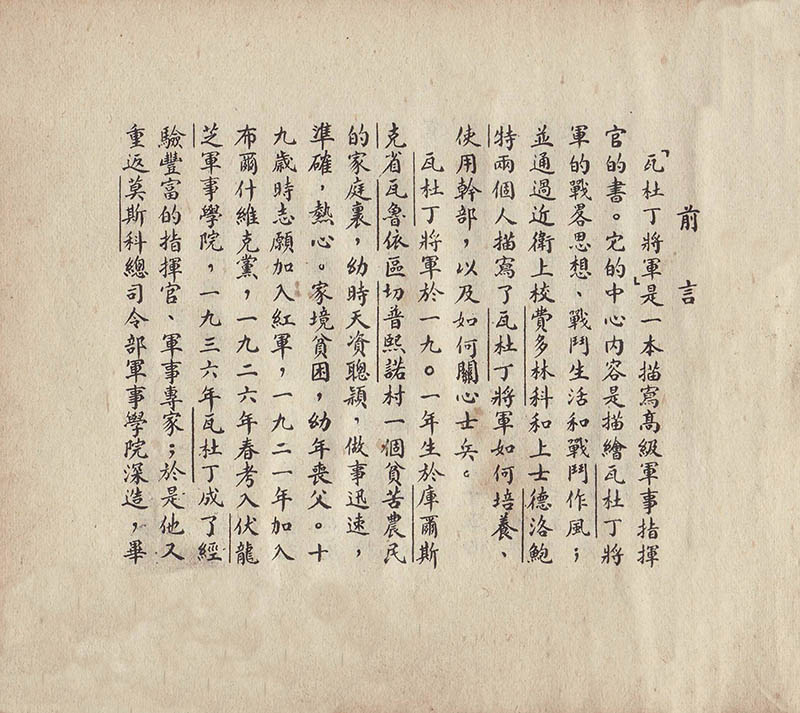 前言
「瓦杜丁將軍」是一本描寫高級軍事指揮
官的書。它的中心内容是描繪瓦杜丁將
軍的戰畧思想、戰鬥生活和戰鬥作風；
並通過近衛上校費多林科和上士德洛鮑
特兩個人描寫了瓦杜丁將軍如何培養、
使用幹部，以及如何關心士兵。
瓦杜丁將軍於一九〇一年生於庫爾斯
克省瓦魯依區切普熙諾村一個貧苦農民
的家庭裏，幼時天資聰穎，做事迅速，
準確，熱心。家境貧困，幼年喪父。十
九歲時志願加入紅軍，一九二一年加入
布爾什維克黨，一九二六年春考入伏龍
芝軍事學院，一九三六年瓦杜丁成了經
驗豐富的指揮官、軍事專家；於是他又
重返莫斯科總司令部軍事學院深造，畢